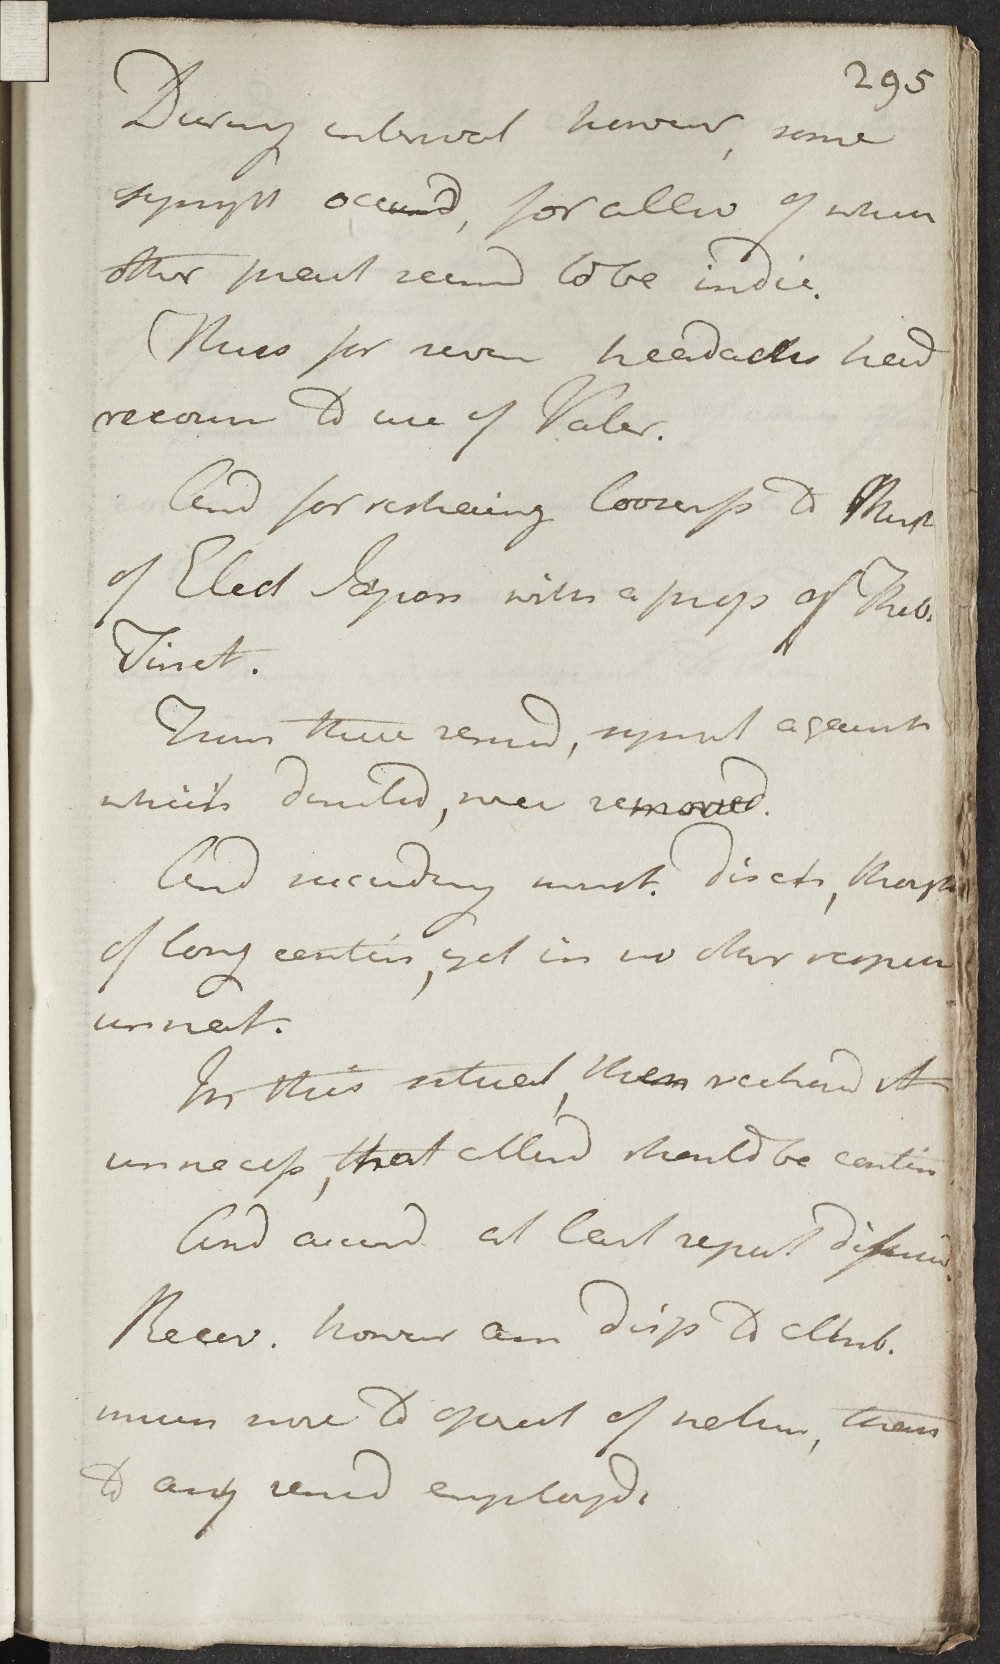 295
During interval howevr, some
sympt occurd, for allev of when
other pract seemd to be indic.
Thus for sever headachs had
recour to use of Valer.
And for restraing loosenss to Mixt
of Elect Japon with a prop of Theb.
Tinct.
From these remd, sympt against
which directd, were removed.
And menst. disch, though
of long contin, yet in no other respec
unnat.
In this situat, then reckond it
unnecess, that should be contin
And accord at last report
Recov. howevr am disp to attrib.
much more to operat of natur, than
to any remd employd.